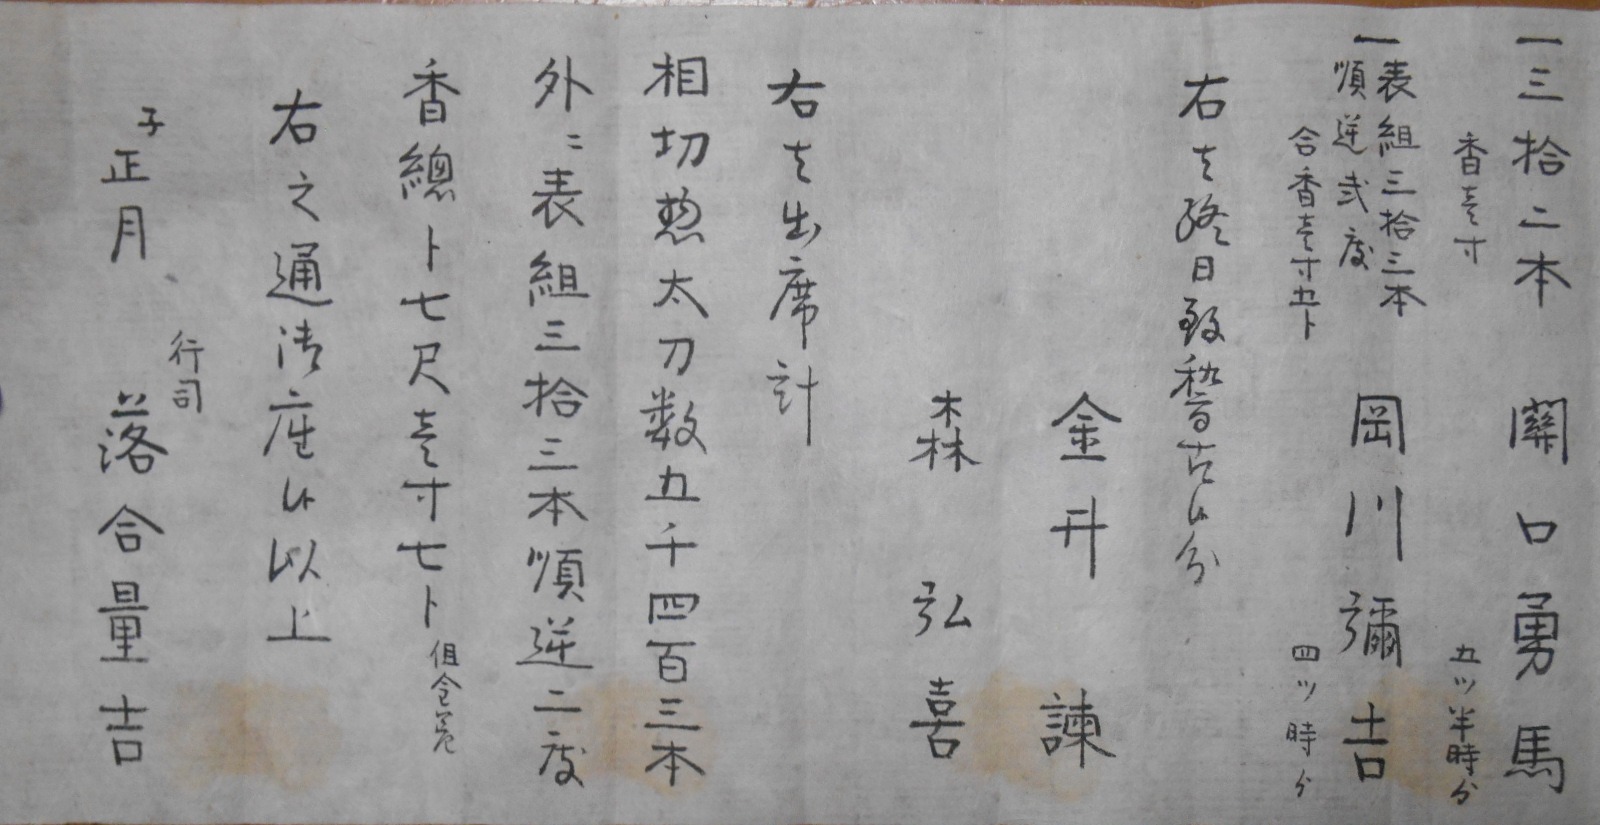 一三拾二本 關口勇馬
香壱寸 五ツ半時ゟ
一表組三拾三本
順逆弐度 岡川彌吉
合香壱寸五卜 四ツ時ゟ
右者終日致稽古候分
金井 諫
森 弘喜
右者出席計
相切惣太刀数五千四百三本
外ニ表組三拾三本順逆二度
香總卜七尺壱寸七卜
右之通御座候以上
行司
子正月 落合量吉